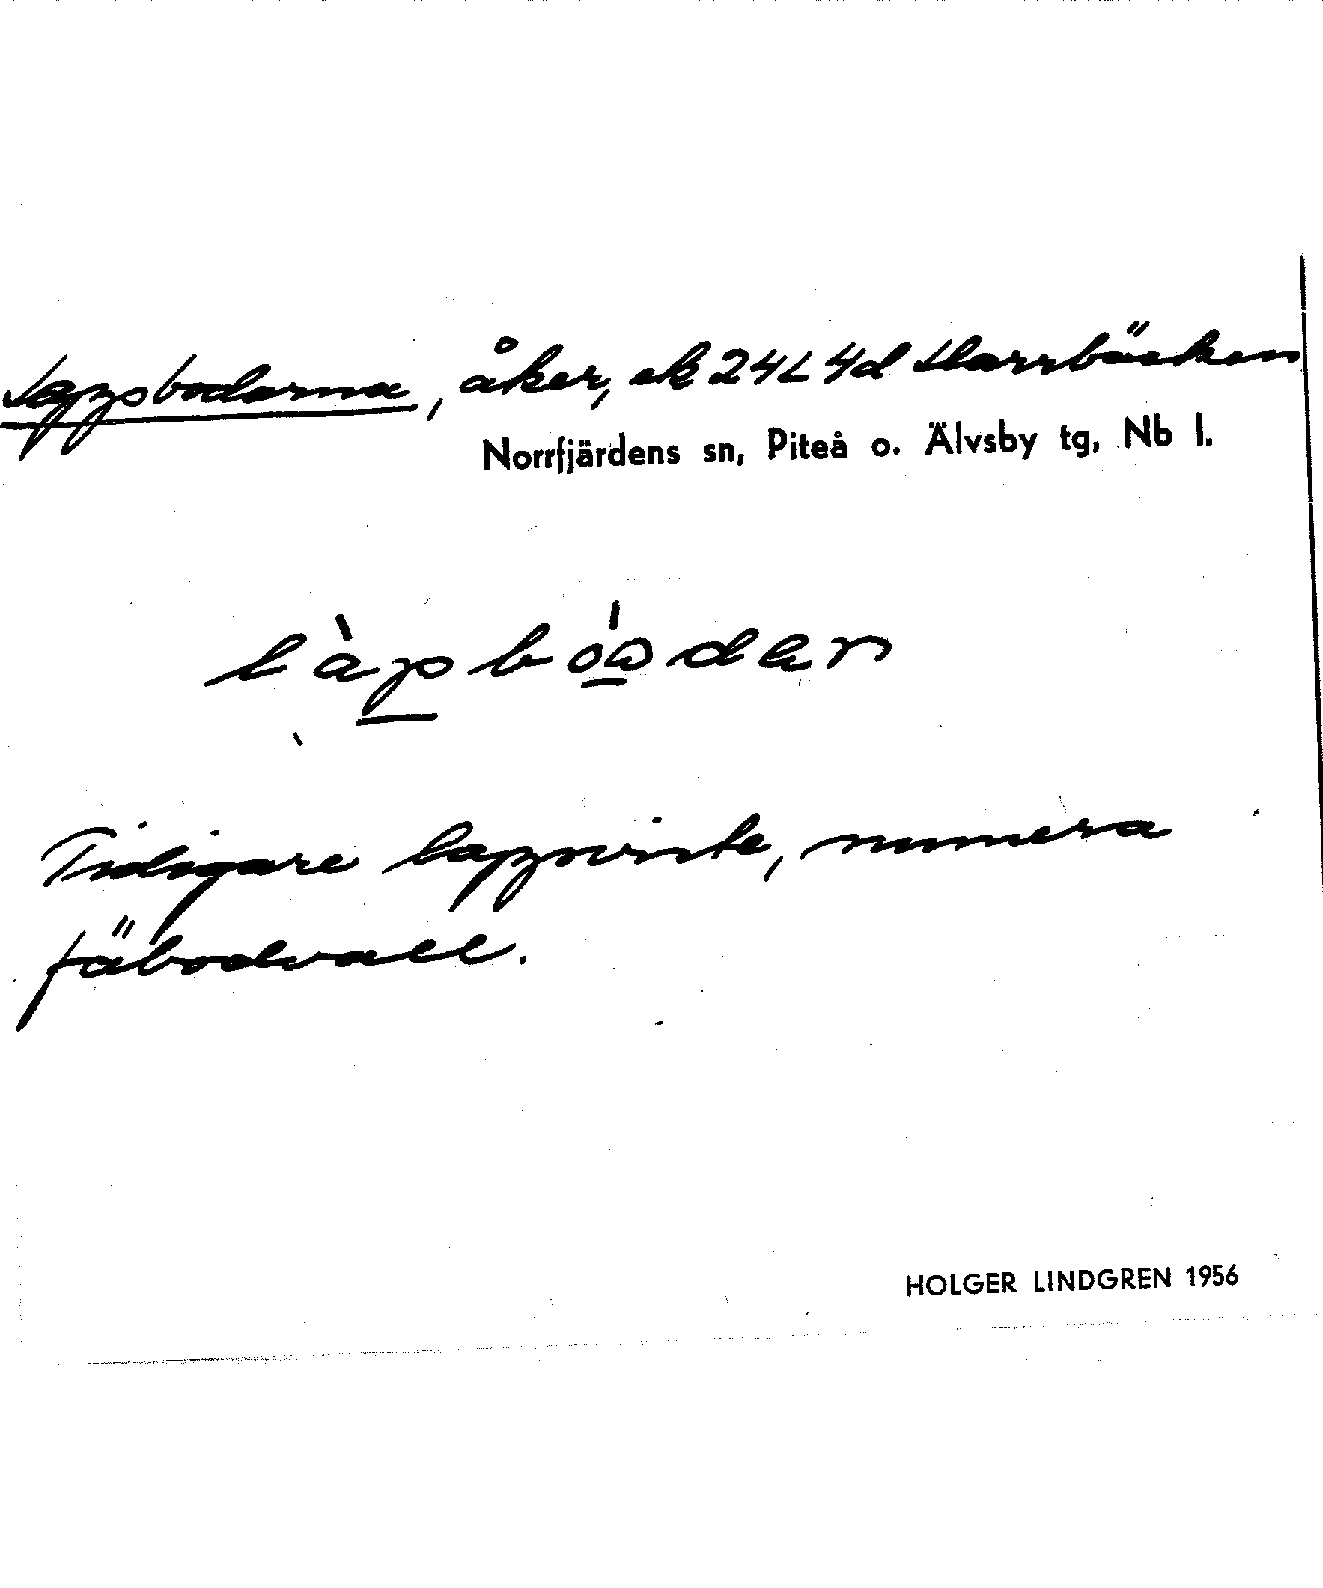 Lappbodarna, åker, ek 24L 4d Harrbäcken
Norrfjärdens sn, Piteå o. Älvsby tg, Nb l.
Tidigare lappviste, numera
fäbodvall.
HOLGER LINDGREN 1956